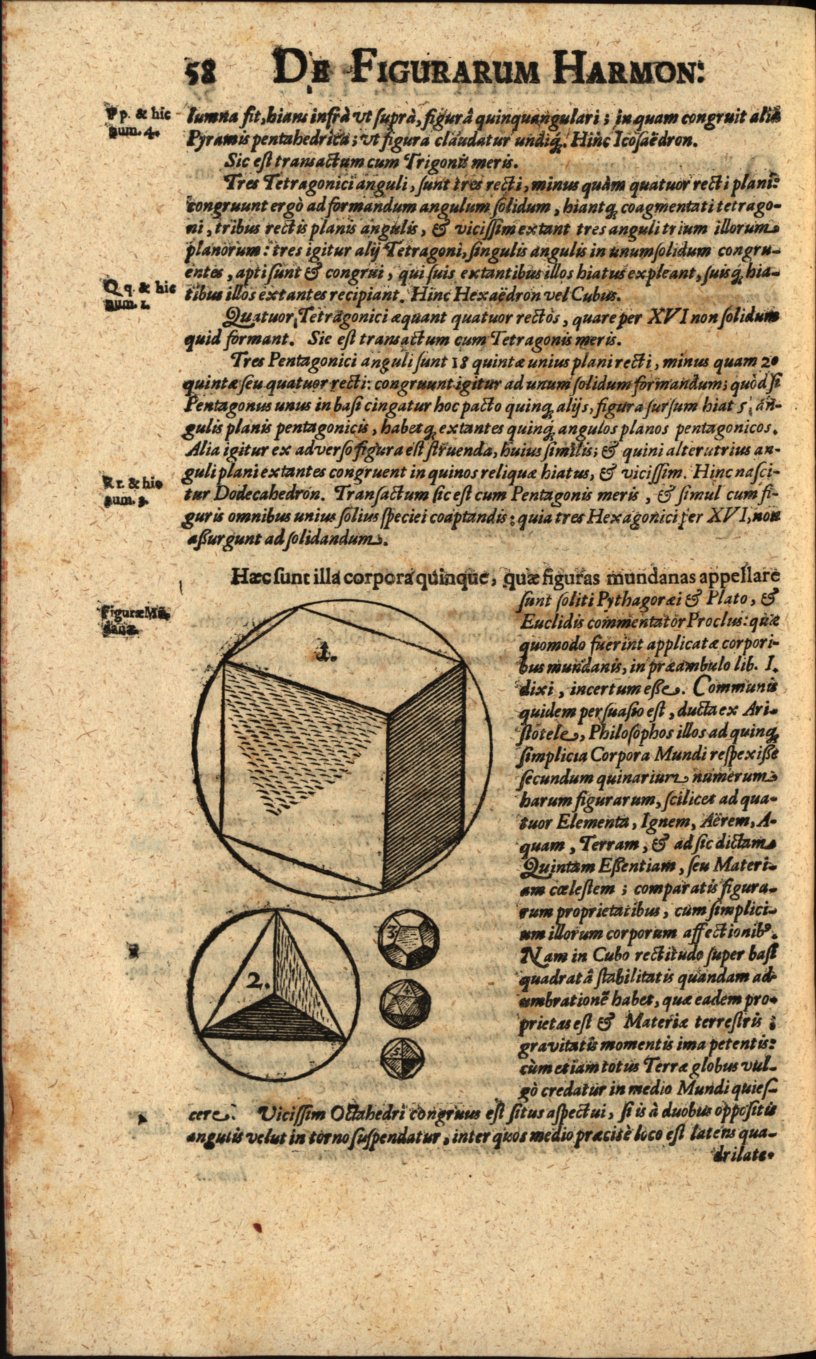 58 DE FIGURARUM HARMON:
Pp. & hic
num. 4.
lumna fit, hians infrà vt suprà, figurâ quinquangulari; in quam congruit alia
Pyramis pentahedrica; vt figura claudatur undiq́. Hinc Icosaëdron.
Sic est transactum cum Trigonis meris.
Tres Tetragonici anguli, sunt tres recti, minus quàm quatuor recti plani:
congruunt ergò ad formandum angulum solidum, hiantq́ coagmentati tetrago-
ni, tribus rectis planis angulis, & vicissim extant tres anguli trium illorum
planorum: tres igitur alij Tetragoni, singulis angulis in unum solidum congru-
entes, apti sunt & congrui, qui suis extantibus illos hiatus expleant, suisq́ hia-
Qq. & hic
num. 1.
tibus illos extantes recipiant. Hinc Hexaëdron vel Cubus.
Quatuor Tetragonici æquant quatuor rectos, quare per XVI non solidum
quid formant. Sic est transactum cum Tetragonis meris.
Tres Pentagonici anguli sunt 18 quintæ unius plani recti, minus quam 20
quintæ seu quatuor recti: congruunt igitur ad unum solidum formandum; quòd si
Pentagonus unus in basi cingatur hoc pacto quinq́ alijs, figura sursum hiat 5, an-
gulis planis pentagonicis, habetq́ extantes quinq́ angulos planos pentagonicos.
Alia igitur ex adverso figura est struenda, huius similis; & quini alterutrius an-
guli plani extantes congruent in quinos reliquæ hiatus, & vicissim. Hinc nasci-
Rr. & hic
num. 3.
tur Dodecahedron. Transactum sic est cum Pentagonis meris, & simul cum fi-
guris omnibus unius solius speciei coaptandis: quia tres Hexagonici per XVI, non
assurgunt ad solidandum.
Hæc sunt illa corpora quinque, quæ figuras mundanas appellare
Figuræ Mũ-
danæ.
sunt soliti Pythagoræi & Plato, &
Euclidis commentator Proclus: quæ
quomodo fuerint applicatæ corpori-
bus mundanis, in præambulo lib. I.
dixi, incertum esse. Communis
quidem persuasio est, ducta ex Ari-
stotele, Philosophos illos ad quinq́
simplicia Corpora Mundi respexisse
secundum quinarium numerum
harum figurarum, scilicet ad qua-
tuor Elementa, Ignem, Aërem, A-
quam, Terram, & ad sic dictam
Quintam Essentiam, seu Materi-
am cœlestem; comparatis figura-
rum proprietatibus, cùm simplici-
um illorum corporum affectionibꝰ.
Nam in Cubo rectitudo super basi
quadratâ stabilitatis quandam ad-
umbrationẽ habet, quæ eadem pro-
prietas est & Materiæ terrestris;
gravitatis momentis ima petentis:
cùm etiam totus Terræ globus vul-
gò credatur in medio Mundi quies-
cere. Vicissim Octahedri congruus est situs aspectui, si is à duobus oppositis
angulis velut in torno suspendatur, inter quos medio præcisè loco est latens qua-
drilate-
1.
2.
3
4
5